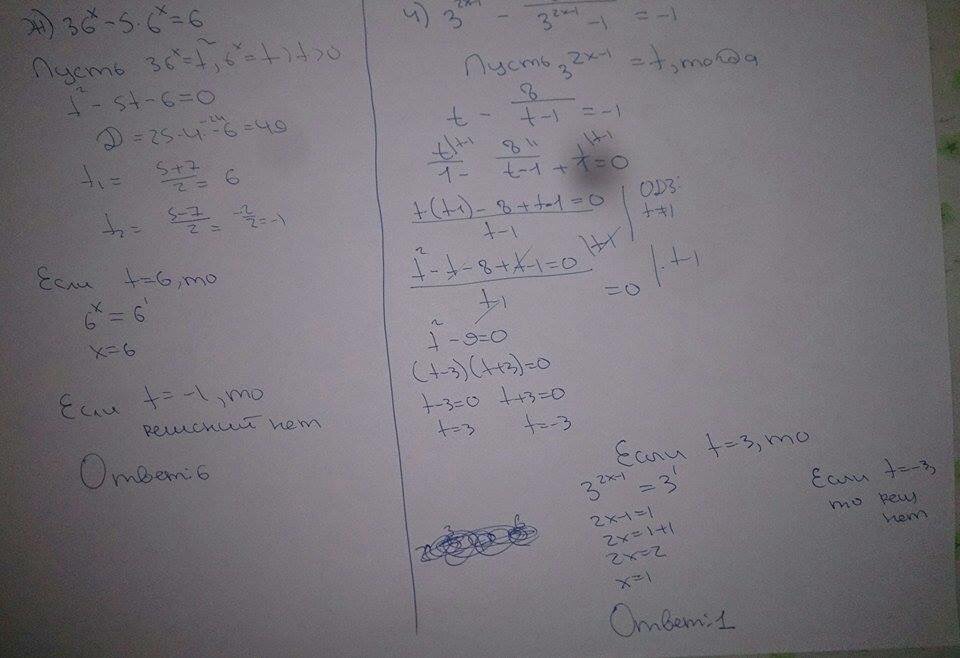 ж) 36^x - 5·6^x = 6
Пусть 36^x = t^2, 6^x = t, t>0
t^2 - 5t - 6 = 0
t1 = (5+7)/2 = 6
t2 = (5-7)/2 = -2/2 = -1
Если t=6, то
6^x = 6^1
x=6
Если t=-1, то
решений нет
Ответ: 6
3^(2x-1) - /(3^(2x-1) - 1) = -1
Пусть 3^(2x-1) = t, тогда
t - 8/(t-1) = -1
t/1 - 8/(t-1) + = 0
ОДЗ:
t≠1
t^2 - t - 8 + t - 1 = 0
= 0
t^2 - 9 = 0
(t-3)(t+3)=0
t-3=0 t+3=0
t=3 t=-3
Если t=3, то
3^(2x-1) = 3^1
2x-1=1
2x=1+1
2x=2
x=1
Ответ: 1
Если t=-3,
то реш
нет